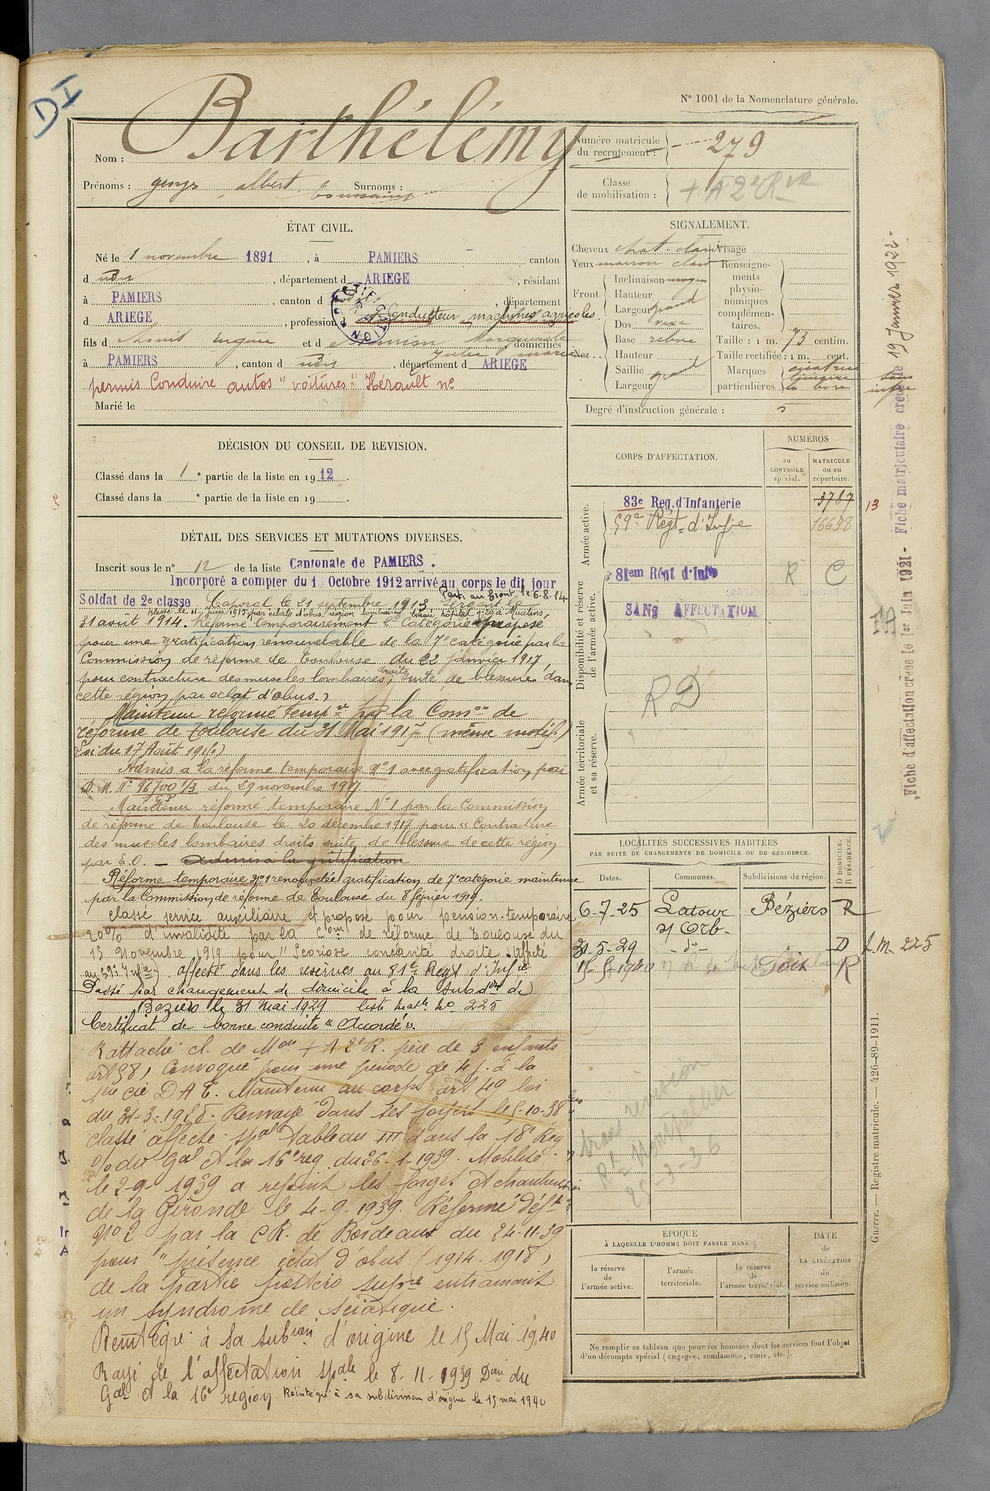 DI
N° 1001 de la Nomenclature générale.
Nom : Barthélémy
Prénoms : georges albert Surnoms : Toussaint
Numéro matricule du recrutement : 279
Classe de mobilisation :
ÉTAT CIVIL.
Né le 1 novembre 1891, à PAMIERS, canton
d udis, département d ARIEGE, résidant
à PAMIERS, canton d , département
d ARIEGE, profession d Conducteur machines agricoles.
fils d et d Marguerite, domiciliés
Julie Marie
à PAMIERS, canton d udis, département d ARIEGE
permis Conduire autos "voitures" Hérault n°
Marié le
SIGNALEMENT.
Cheveux chat. clair Visage
Yeux marron clair Renseignements physionomiques complémentaires.
Front. Inclinaison moyen
Hauteur
Largeur grand
Nez.. Dos
Base
Hauteur
Saillie
Largeur grand
Taille : 1 m. 73 centim.
Taille rectifiée : 1 m. cent.
Marques particulières
Degré d'instruction générale :
DÉCISION DU CONSEIL DE REVISION.
Classé dans la 1e partie de la liste en 1912.
Classé dans la e partie de la liste en 19 .
DÉTAIL DES SERVICES ET MUTATIONS DIVERSES.
Inscrit sous le n° 12 de la liste Cantonale de PAMIERS.
Incorporé a compter du 1 Octobre 1912 arrivé au corps le dit jour
Parti au front le 6.8.14
Soldat de 2e classe Caporal le 21 septembre 1913
31 août 1914. Réformé temporairement 1e Catégorie proposé
pour une gratification renouvelable de la 7e catégorie par la
Commission de réforme de Toulouse du 22 janvier 1917,
pour contracture des muscles lombaires droits, suite de blessure dans
cette région par éclat d'obus.
Maintenu réformé temp.re par la Com.on de
réforme de Toulouse du 31 Mai 1917 (même motif)
Loi du 17 Août 191
Admis à la réforme temporaire N°1 avec gratification par
D.M. N° 96700 1/3 du 29 novembre 1917
Maintenu réformé temporaire N°1 par la Commission
de réforme de Toulouse le 20 décembre 1917 pour "Contracture
des muscles lombaires droits suite de blessure de cette région
par E.O. — Admis à la gratification
Réforme temporaire n°1 renouvelée gratification de 7e catégorie maintenue
par la Commission de réforme de Toulouse du 8 février 1919.
classé service auxiliaire et proposé pour pension temporaire
20% d'invalidité par la Com de réforme de Toulouse du
13 Novembre 1919 pour "Scoliose droite
affecté dans les réserves au 81e Regt d'Infie
Passé par changement de domicile à la subdon de
Béziers le 31 Mai 1929 liste matle No 225
Certificat de bonne conduite "Accordé".
Rattaché cl. de Mon + A 2e R. père de 3 enfants
art 58, convoqué pour une période de 4 j. à la
1re cie D A T. Maintenu au corps art 49 loi
du 31-3-1928. Renvoyé dans ses foyers le 5-10-38
classé affecté spal tableau III dans la 18e Reg
% du Gal Ct la 16e reg. du 26-1-1939. Mobilisé
le 2-9-1939 a rejoint les forges et chantiers
de la Gironde le 4-9-1939. Réformé déft
N°2 par la C.R. de Bordeaux du 24-11-39
pour "présence éclat d'obus (1914-1918)
de la partie supre entrainant
un syndrome de sciatique.
Réintégré à sa subion d'origine le 15 Mai 1940
Rayé de l'affectation spale le 8-11-1939 Don du
Gal Ct la 16e région Réintégré à sa subdivision d'origine le 15 mai 1940
CORPS D'AFFECTATION.
NUMÉROS
au CONTRÔLE spécial.
MATRICULE ou au répertoire.
Armée active.
83e Reg. d'Infanterie 3787 13
59e Régt d'Infie 16628
Disponibilité et réserve de l'armée active.
81em Régt d'Infie R C
SANS AFFECTATION
RD
Armée territoriale et sa réserve.
LOCALITÉS SUCCESSIVES HABITÉES
PAR SUITE DE CHANGEMENTS DE DOMICILE OU DE RÉSIDENCE.
Dates. Communes. Subdivisions de région. D DOMICILE. R RÉSIDENCE.
6-7-25 Latour s/ Orb. Béziers R
31-5-29 -d°- D l.m. 225
1940 Foix R
revision
Rt Montpellier
-3-36
ÉPOQUE
À LAQUELLE L'HOMME DOIT PASSER DANS :
la réserve de l'armée active.
l'armée territoriale.
la réserve de l'armée territoriale.
DATE de LA LIBÉRATION du service militaire.
Ne remplir ce tableau que pour les hommes dont les services font l'objet
d'un décompte spécial (engagés, condamnés, omis, etc.).
Fiche d'affectation créée le 1er Juin 1921 - Fiche matriculaire créée le 19 Janvier 1922 -
Guerre. — Registre matricule. — 426-89-1911.